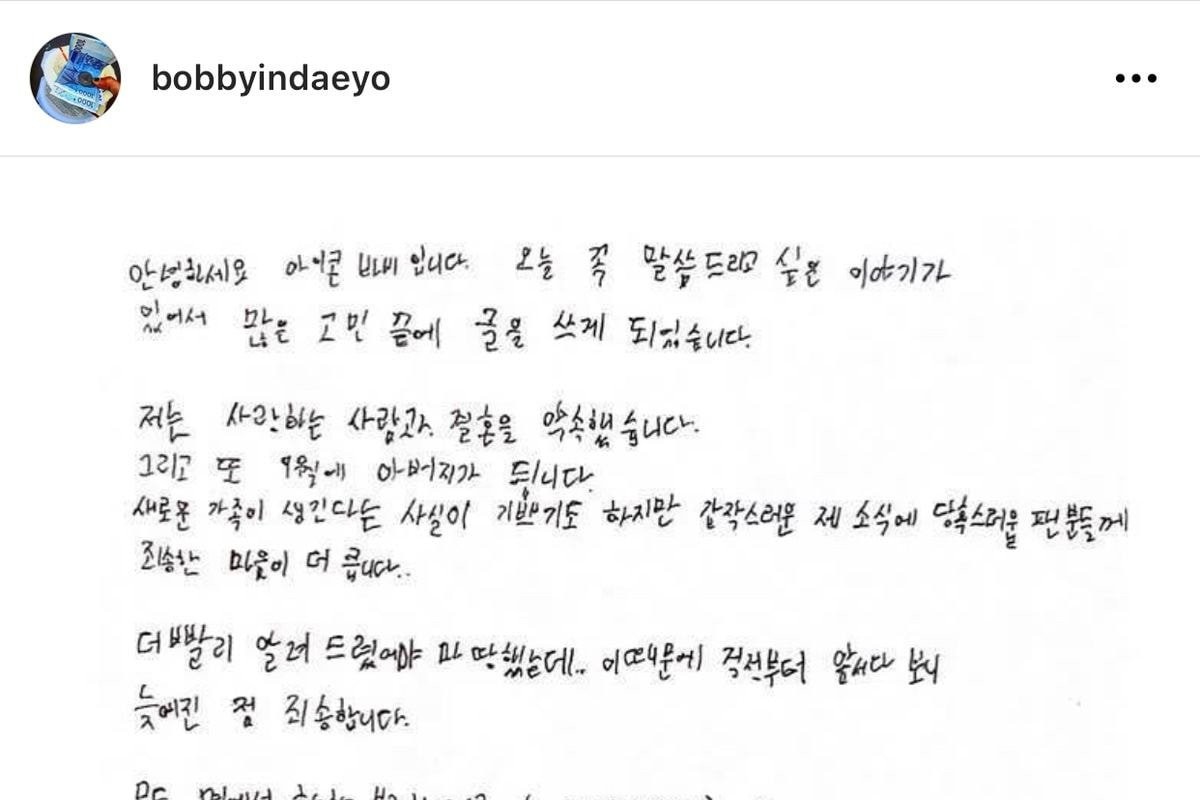 bobbyindaeyo
안녕하세요 아이콘 바비 입니다. 오늘 꼭 말씀드리고 싶은 이야기가
있어서 많은 고민 끝에 글을 쓰게 되었습니다.
저는 사랑하는 사람과 결혼을 약속했습니다.
그리고 또 9월에 아버지가 됩니다.
새로운 가족이 생긴다는 사실이 기쁘기도 하지만 갑작스러운 제 소식에 당혹스러울 팬분들께
죄송한 마음이 더 큽니다..
더 빨리 알려 드렸어야 마땅했는데.. 이 때문에 걱정부터 앞서다 보니
늦어진 점 죄송합니다.